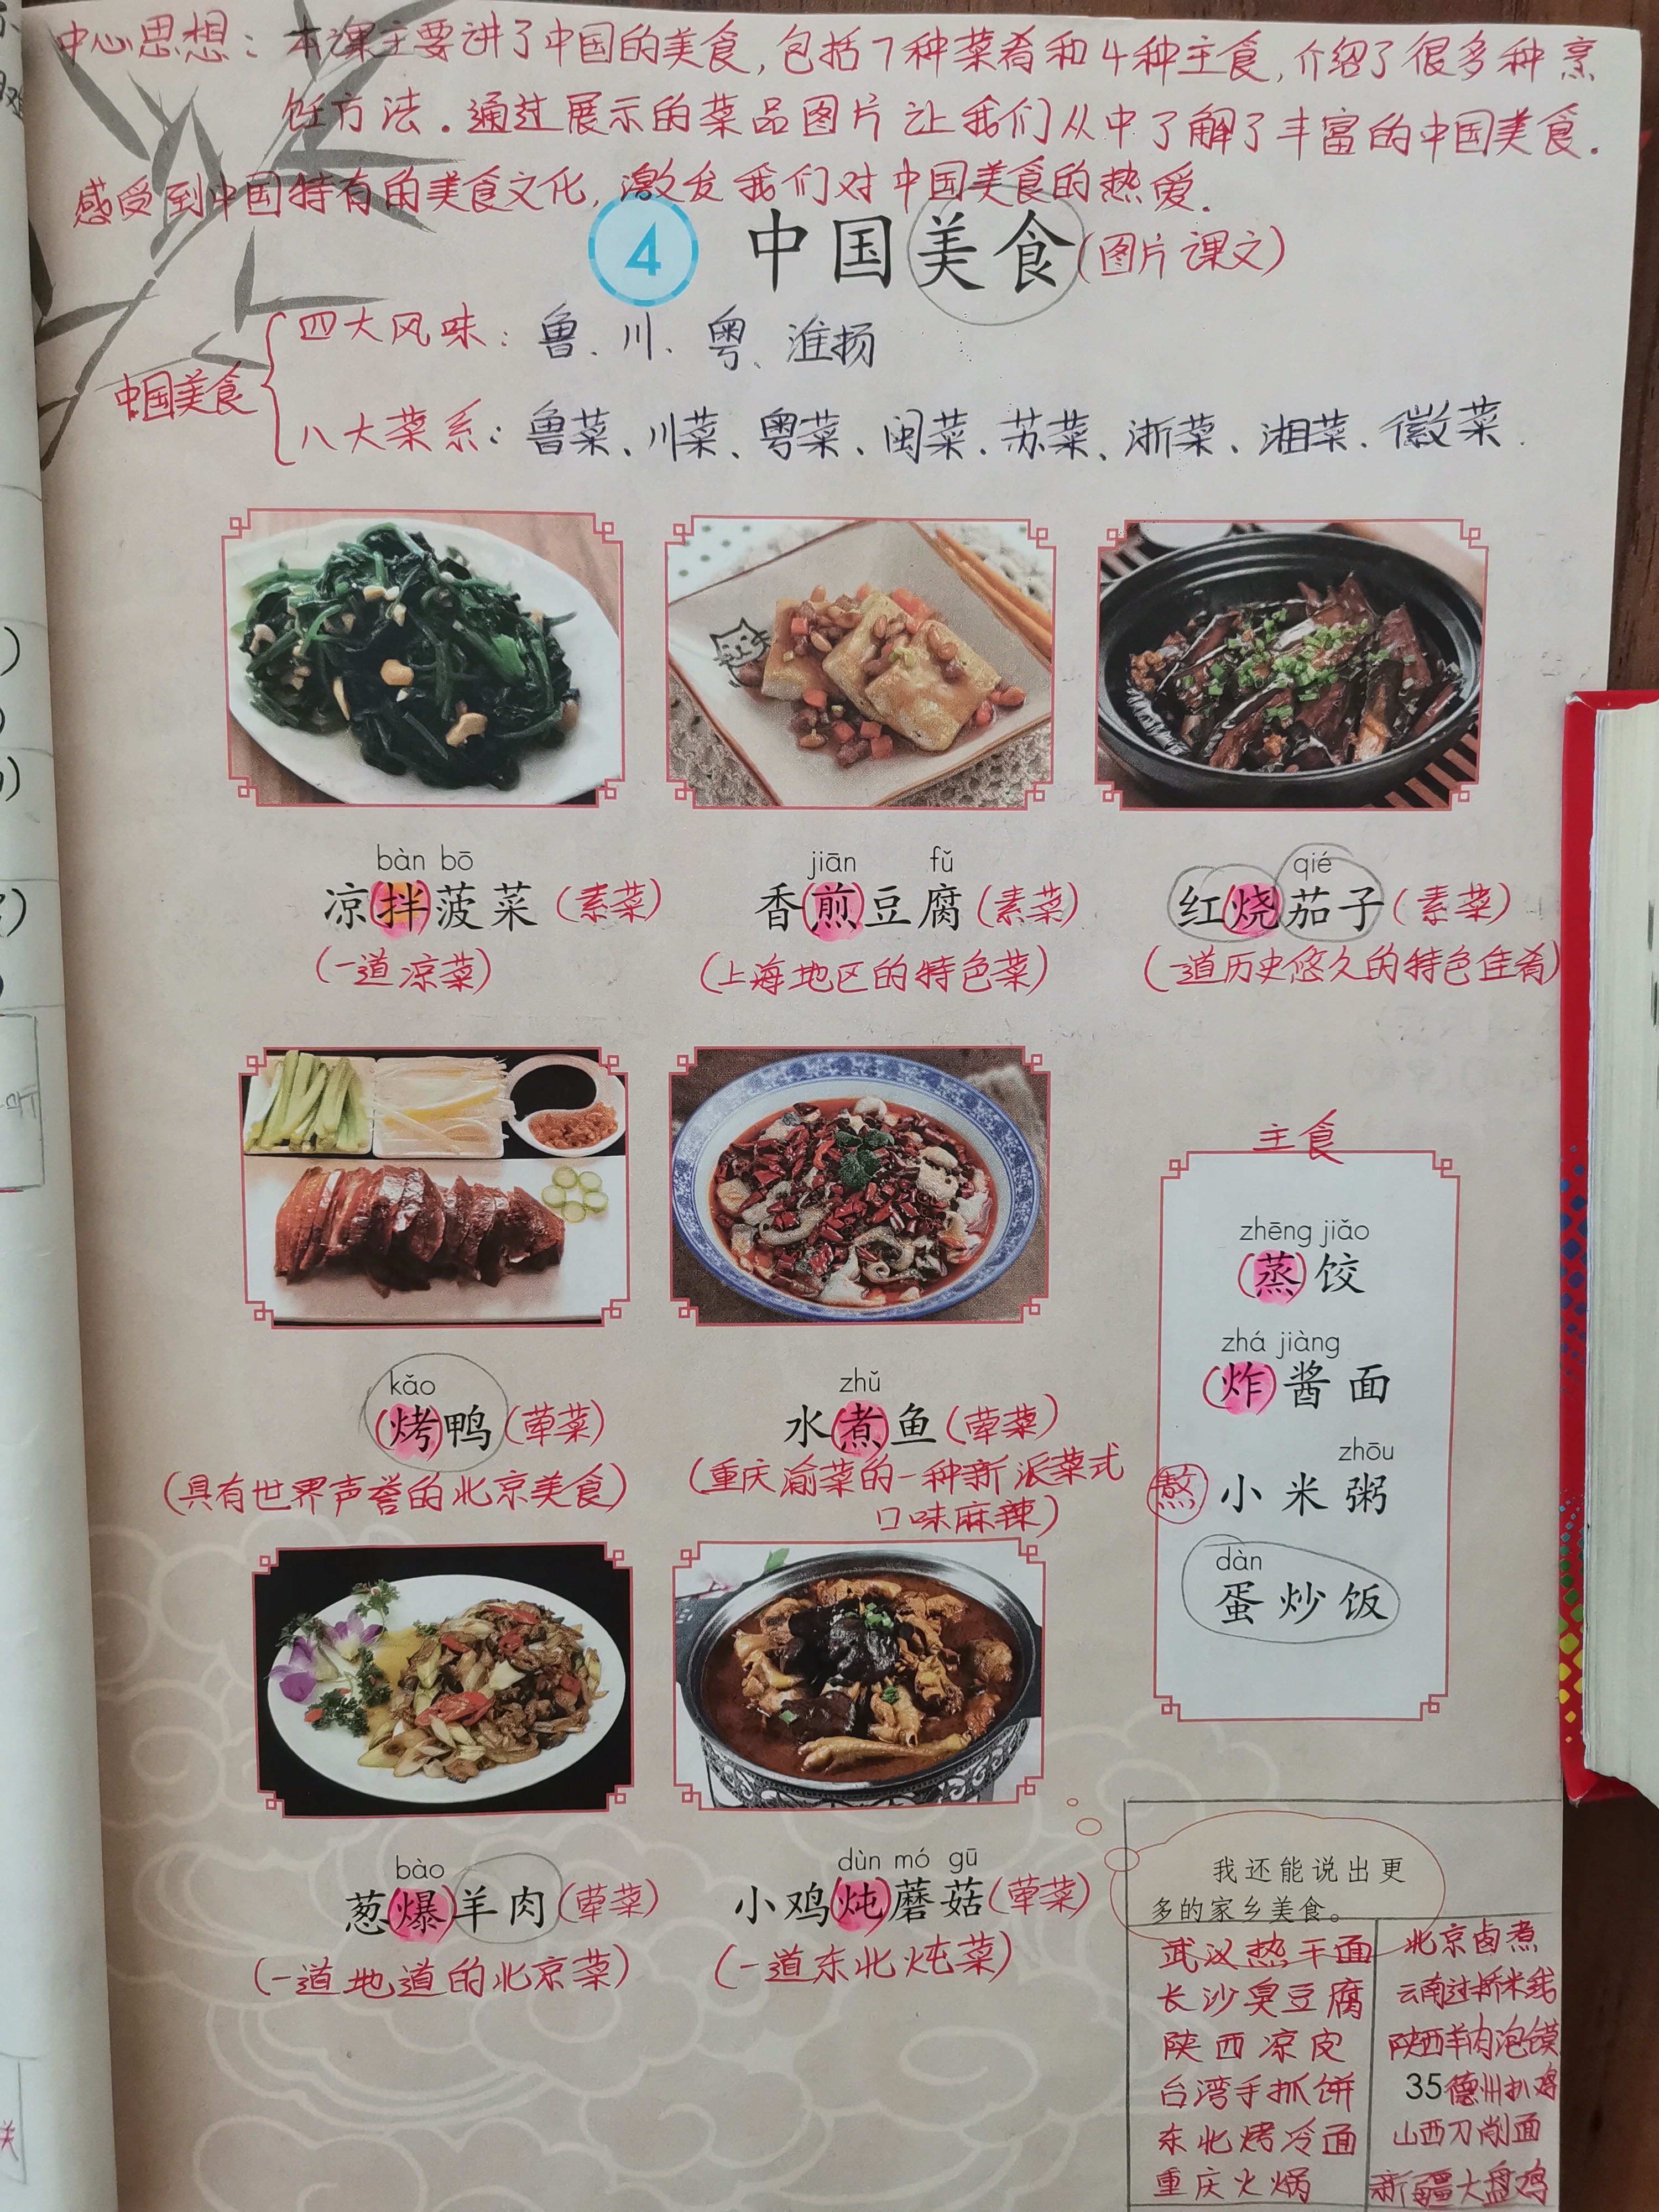 中心思想：本课主要讲了中国的美食，包括7种菜肴和4种主食，介绍了很多种烹
饪方法．通过展示的菜品图片让我们从中了解了丰富的中国美食．
感受到中国特有的美食文化，激发我们对中国美食的热爱．
4 中国美食(图片课文)
中国美食
四大风味：鲁、川、粤、淮扬
八大菜系：鲁菜、川菜、粤菜、闽菜．苏菜、浙菜、湘菜．徽菜．
bàn bō
凉(拌)菠菜(素菜)
(一道凉菜)
jiān fǔ
香(煎)豆腐(素菜)
(上海地区的特色菜)
qié
红烧茄子(素菜)
(一道历史悠久的特色佳肴)
kǎo
(烤)鸭(荤菜)
(具有世界声誉的北京美食)
zhǔ
水(煮)鱼(荤菜)
(重庆渝菜的一种新派菜式
口味麻辣)
主食
zhēng jiǎo
(蒸)饺
zhá jiàng
(炸)酱面
zhōu
熬 小米粥
dàn
蛋炒饭
bào
葱(爆)羊肉(荤菜)
(一道地道的北京菜)
dùn mó gū
小鸡(炖)蘑菇(荤菜)
(一道东北炖菜)
我还能说出更
多的家乡美食。
武汉热干面
长沙臭豆腐
陕西凉皮
台湾手抓饼
东北烤冷面
重庆火锅
北京卤煮
云南过桥米线
陕西羊肉泡馍
35 德州扒鸡
山西刀削面
新疆大盘鸡